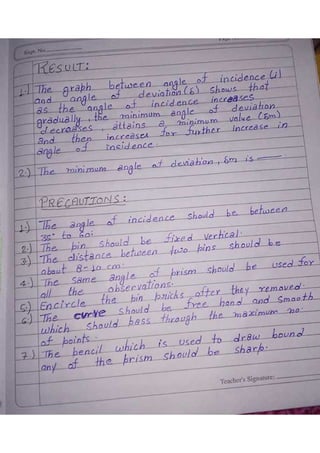 Expt. No.
RESULT:
1.) The graph between angle of incidence (i)
and angle of deviation (δ) shows that
as the angle of incidence increases
gradually, the minimum angle of deviation
decreases, attains a minimum value (δm)
and then increases for further increase in
angle of insidence.
2.) The minimum angle of deviation, δm is —
PRECAUTIONS:
1.) The angle of incidence should be between
35° to 60°.
2.) The pin should be fixed vertical.
3.) The distance between two pins should be
about 8-10 cm.
4.) The same angle of prism should be used for
all the observations.
5.) Encircle the pin pricks after they removed.
6.) The curve should be free hand and smooth
which should pass through the maximum no.
of points.
7.) The pencil which is used to draw bound
any of the prism should be sharp.
Teacher's Signature: